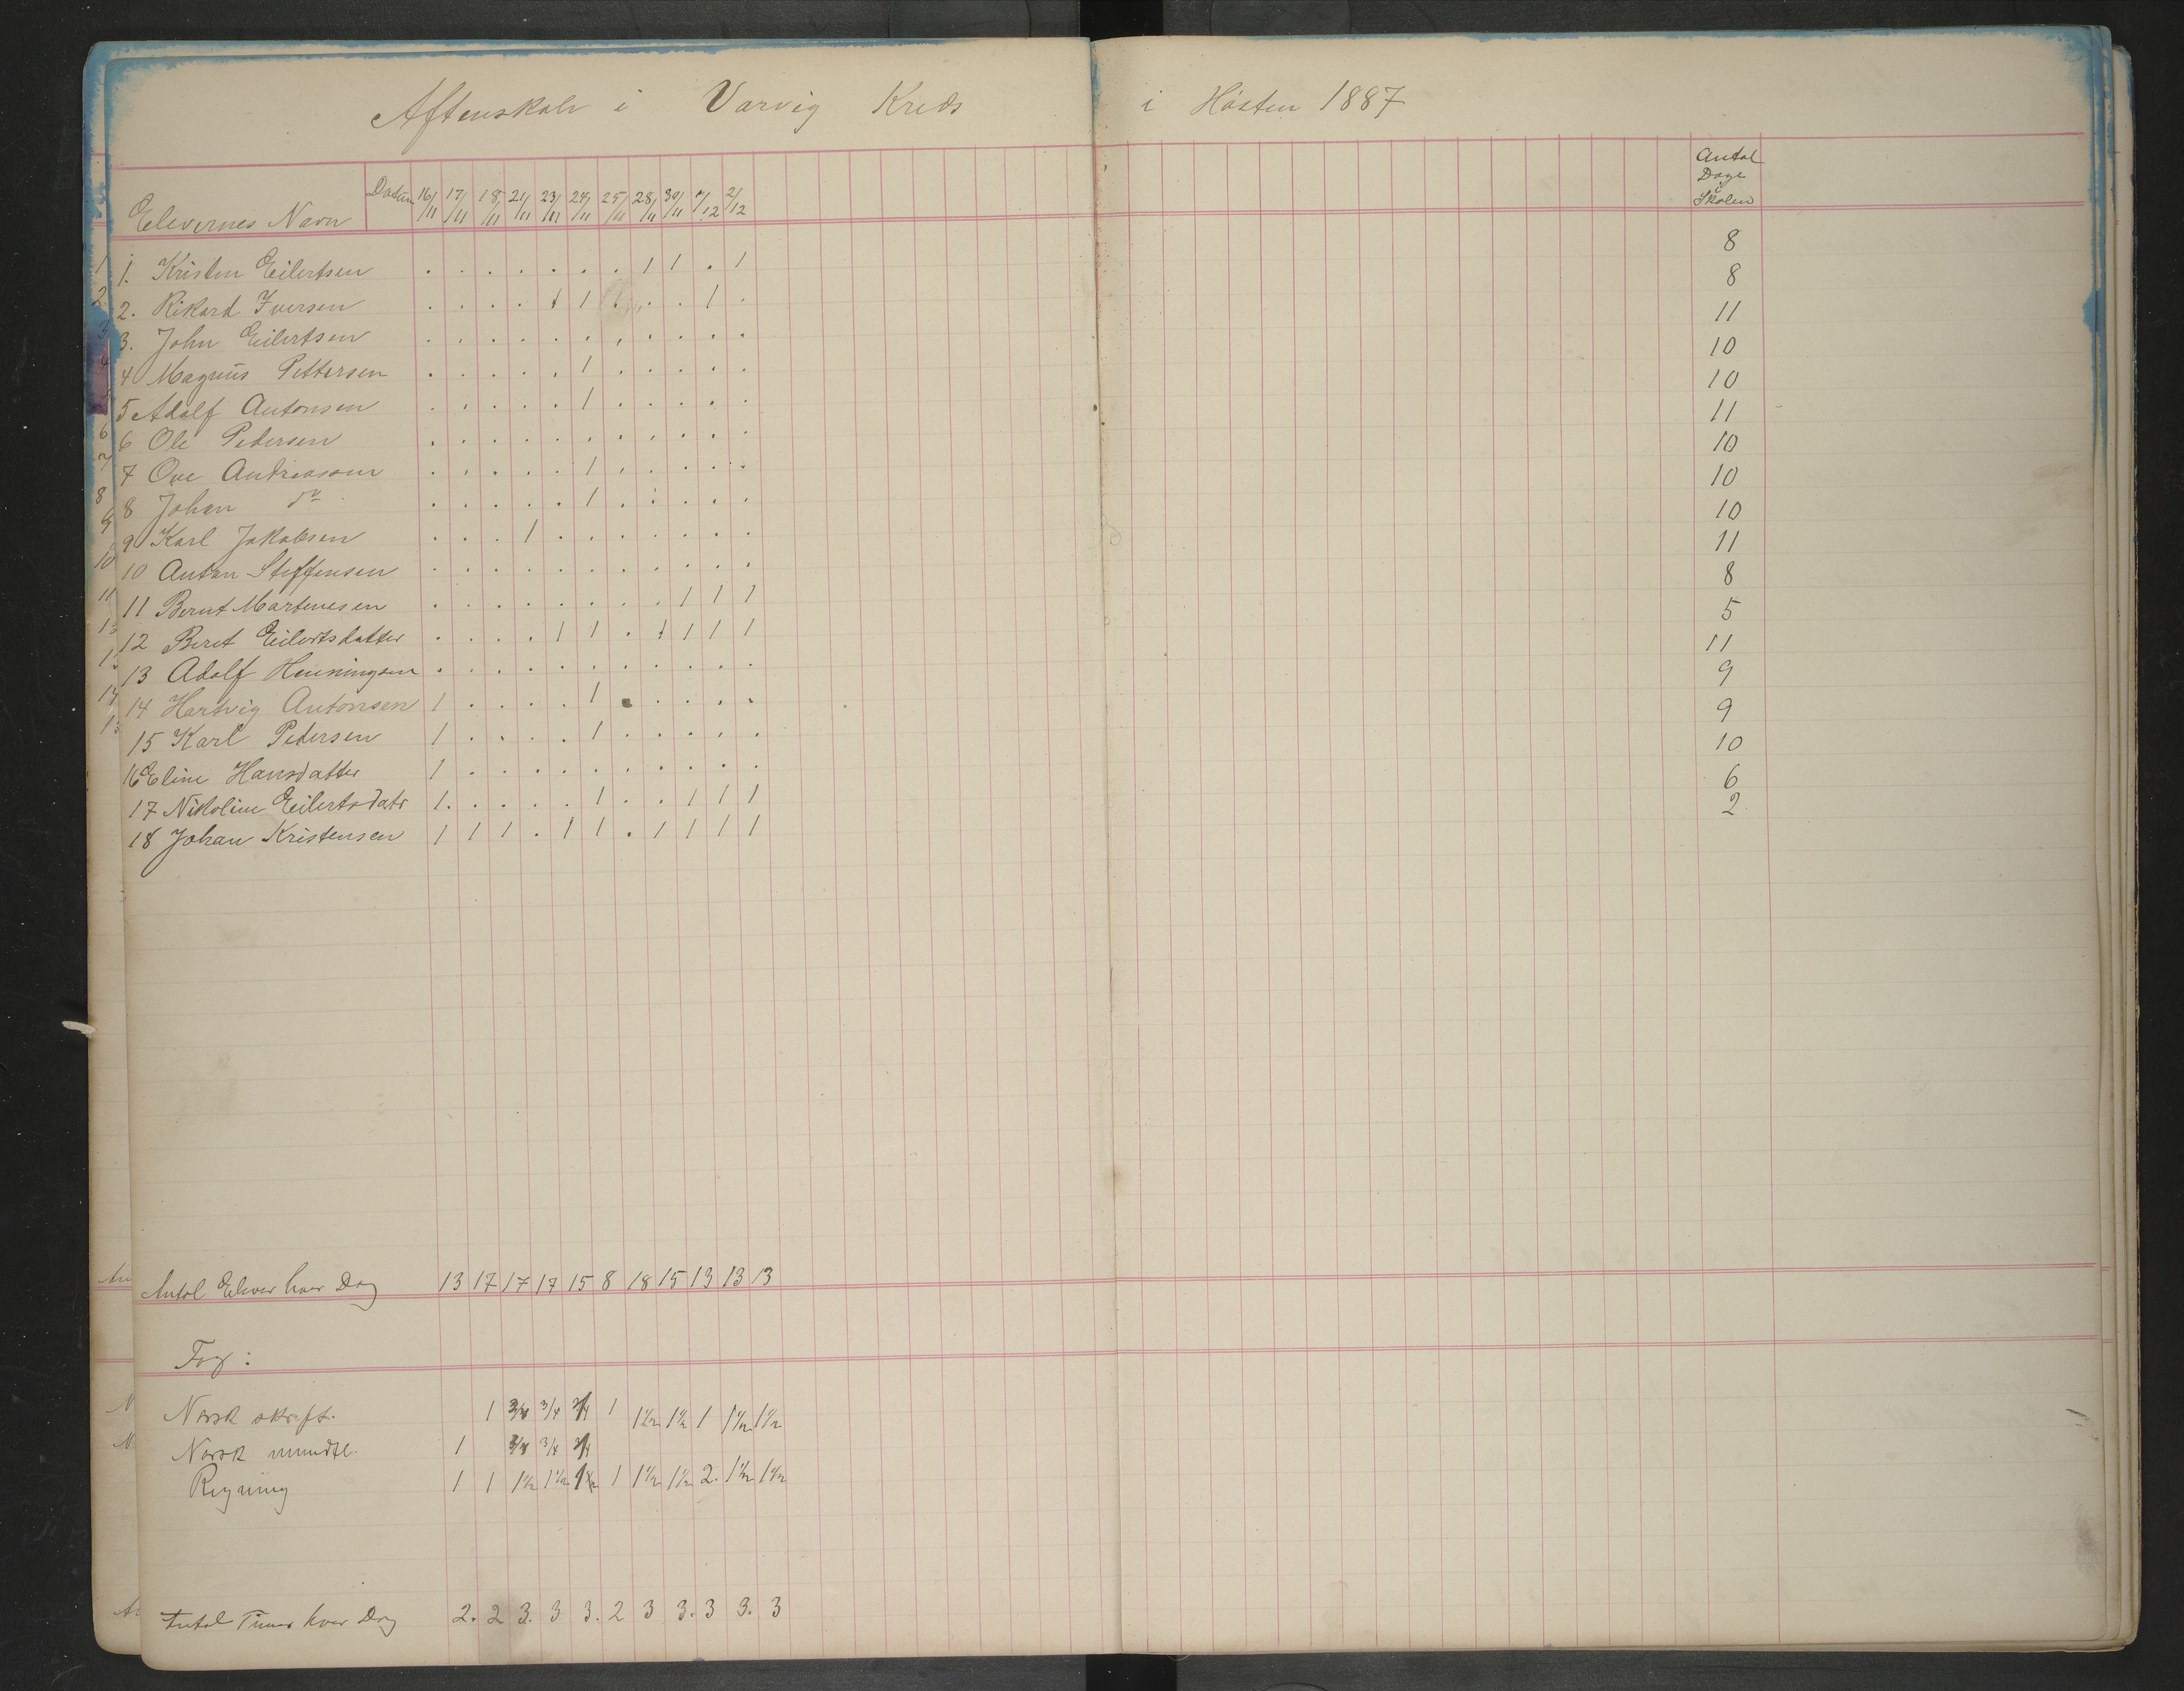 Aftenskole i Varvig Kreds i Hösten 1887
Elevernes Navn Datum 16/11 17/11 18/11 21/11 23/11 24/11 25/11 28/11 30/11 1/12 2/12 Antal Dage i Skolen
1. Kristen Eilertsen . . . . . . . 1 1 . 1 8
2. Rikard Iversen . . . . 1 1 . . . 1 . 8
3. John Eilertsen . . . . . . . . . . . 11
4 Magnus Pettersen . . . . . 1 . . . . . 10
5 Adolf Antonsen . . . . . 1 . . . . . 10
6 Ole Pedersen . . . . . . . . . . . 11
7 Ove Andreassen . . . . . 1 . . . . . 10
8 Johan do . . . . . 1 . . . . . 10
9 Karl Jakobsen . . . 1 . . . . . . . 10
10 Anton Steffensen . . . . . . . . . . . 11
11 Bernt Martinesen . . . . . . . . 1 1 1 8
12 Beret Eilertsdatter . . . . 1 1 . 1 1 1 1 5
13 Adolf Henningsen . . . . . . . . . . . 11
14 Hartvig Antonsen 1 . . . . 1 . . . . . 9
15 Karl Pedersen 1 . . . . 1 . . . . . 9
16 Eline Hansdatter 1 . . . . . . . . . . 10
17 Nikoline Eilertsdatr 1 . . . . 1 . . 1 1 1 6
18 Johan Kristensen 1 1 1 . 1 1 . 1 1 1 1 2
Antal Elever hver Dag 13 17 17 17 15 8 18 15 13 13 13
Fag:
Norsk skriftl. 1 3/4 3/4 3/4 1 1 1/2 1 1/2 1 1 1/2 1 1/2
Norsk mundtl. 1 3/4 3/4 3/4
Regning 1 1 1 1/2 1 1/2 1 1/2 1 1 1/2 1 1/2 2. 1 1/2 1 1/2
Antal Timer hver Dag 2. 2 3. 3 3. 2 3 3. 3 3. 3